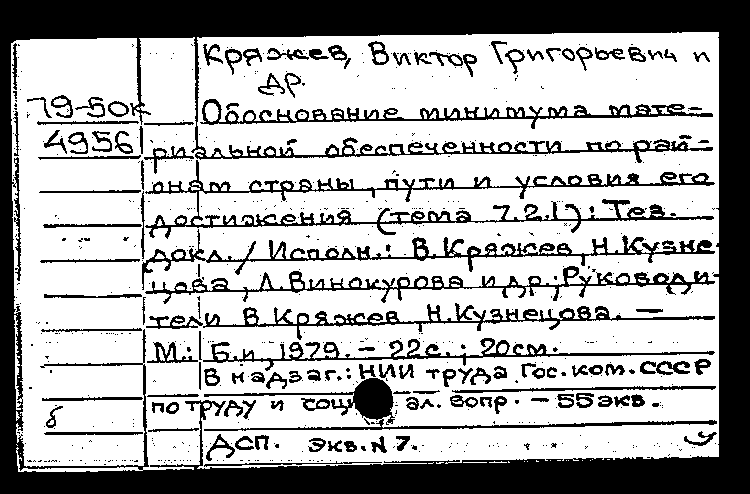 Кряжев, Виктор Григорьевич и
др.
79-50к
Обоснование минимума мате-
4956
риальной обеспеченности по рай-
онам страны, пути и условия его
достижения (тема 7.2.1): Тез.
докл. / Исполн.: В.Кряжев, Н.Кузне-
цова, Л.Винокурова и др.; Руководи-
тели В.Кряжев, Н.Кузнецова. —
М.: Б.и, 1979. – 22с.; 20см.
В надзаг.: НИИ труда Гос.ком. СССР
б
по труду и соци ал. вопр. – 55экв.
ДСП. Экв. N 7.